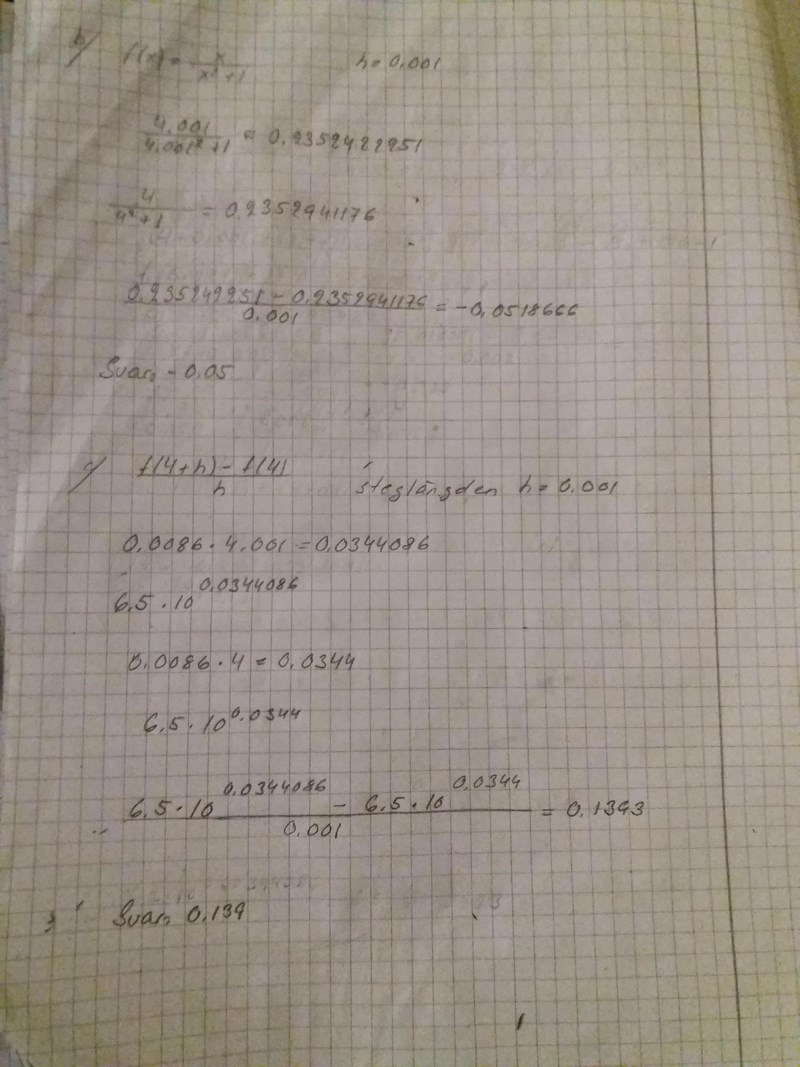 b) f(x) = x/(x²+1) h = 0.001
4.001/(4.001²+1) = 0.2352422251
4/(4²+1) = 0.2352941176
(0.235242251 - 0.2352941176)/0.001 = -0,0518666
Svar: -0.05
c) (f(4+h) - f(4))/h steglängden h = 0.001
0.0086 · 4.001 = 0.0344086
6,5 · 10^0.0344086
0.0086 · 4 = 0.0344
6,5 · 10^0.0344
(6,5 · 10^0.0344086 - 6,5 · 10^0.0344)/0.001 = 0.1393
Svar: 0.139